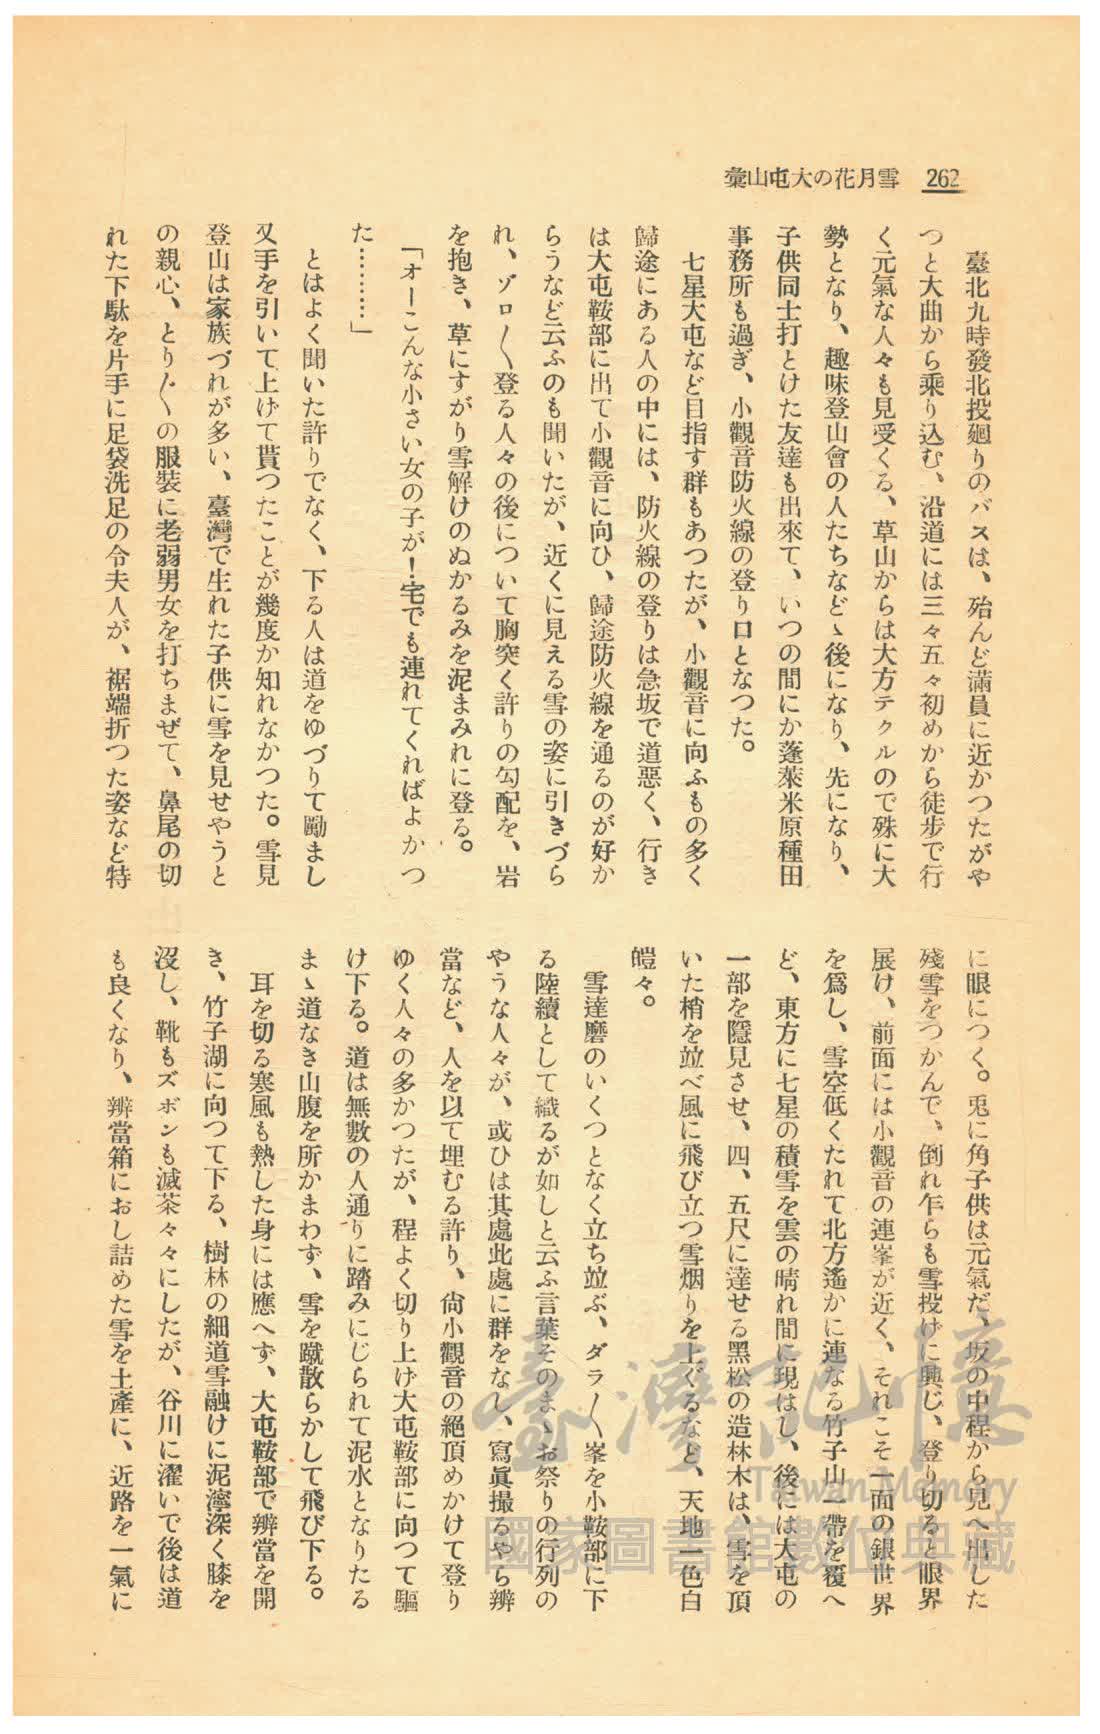 262 雪月花の大屯山彙
臺北九時發北投廻りのバスは、殆んど滿員に近かつたがや
つと大曲から乘り込む、沿道には三々五々初めから徒步で行
く元氣な人々も見受くる、草山からは大方テクルので殊に大
勢となり、趣味登山會の人たちなどゝ後になり、先になり、
子供同士打とけた友達も出來て、いつの間にか蓬萊米原種田
事務所も過ぎ、小觀音防火線の登り口となつた。
七星大屯など目指す群もあつたが、小觀音に向ふもの多く
歸途にある人の中には、防火線の登りは急坂で道惡く、行き
は大屯鞍部に出て小觀音に向ひ、歸途防火線を通るのが好か
らうなど云ふのも聞いたが、近くに見える雪の姿に引きづら
れ、ゾロ〱登る人々の後について胸突く許りの勾配を、岩
を抱き、草にすがり雪解けのぬかるみを泥まみれに登る。
「オーこんな小さい女の子が！宅でも連れてくればよかつ
た………」
とはよく聞いた許りでなく、下る人は道をゆづりて勵まし
又手を引いて上げて貰つたことが幾度か知れなかつた。雪見
登山は家族づれが多い、臺灣で生れた子供に雪を見せやうと
の親心、とり〲の服裝に老弱男女を打ちまぜて、鼻尾の切
れた下駄を片手に足袋洗足の令夫人が、裾端折つた姿など特
に眼につく。兎に角子供は元氣だ、坂の中程から見へ出した
殘雪をつかんで、倒れ乍らも雪投げに興じ、登り切ると眼界
展け、前面には小觀音の連峯が近く、それこそ一面の銀世界
を爲し、雪空低くたれて北方遙かに連なる竹子山一帶を覆へ
ど、東方に七星の積雪を雲の晴れ間に現はし、後には大屯の
一部を隱見させ、四、五尺に達せる黑松の造林木は、雪を頂
いた梢を竝べ風に飛び立つ雪烟りを上ぐるなど、天地一色白
皚々。
雪達磨のいくつとなく立ち竝ぶ、ダラ〱峯を小鞍部に下
る陸續として織るが如しと云ふ言葉そのまゝお祭りの行列の
やうな人々が、或ひは其處此處に群をなし、寫眞撮るやら辨
當など、人を以て埋むる許り、尙小觀音の絕頂めかけて登り
ゆく人々の多かつたが、程よく切り上げ大屯鞍部に向つて驅
け下る。道は無數の人通りに踏みにじられて泥水となりたる
まゝ道なき山腹を所かまわず、雪を蹴散らかして飛び下る。
耳を切る寒風も熱した身には應へず、大屯鞍部で辨當を開
き、竹子湖に向つて下る、樹林の細道雪融けに泥濘深く膝を
沒し、靴もズボンも滅茶々々にしたが、谷川に濯いで後は道
も良くなり、辨當箱におし詰めた雪を土產に、近路を一氣に
臺灣記憶
Taiwan Memory
國家圖書館數位典藏